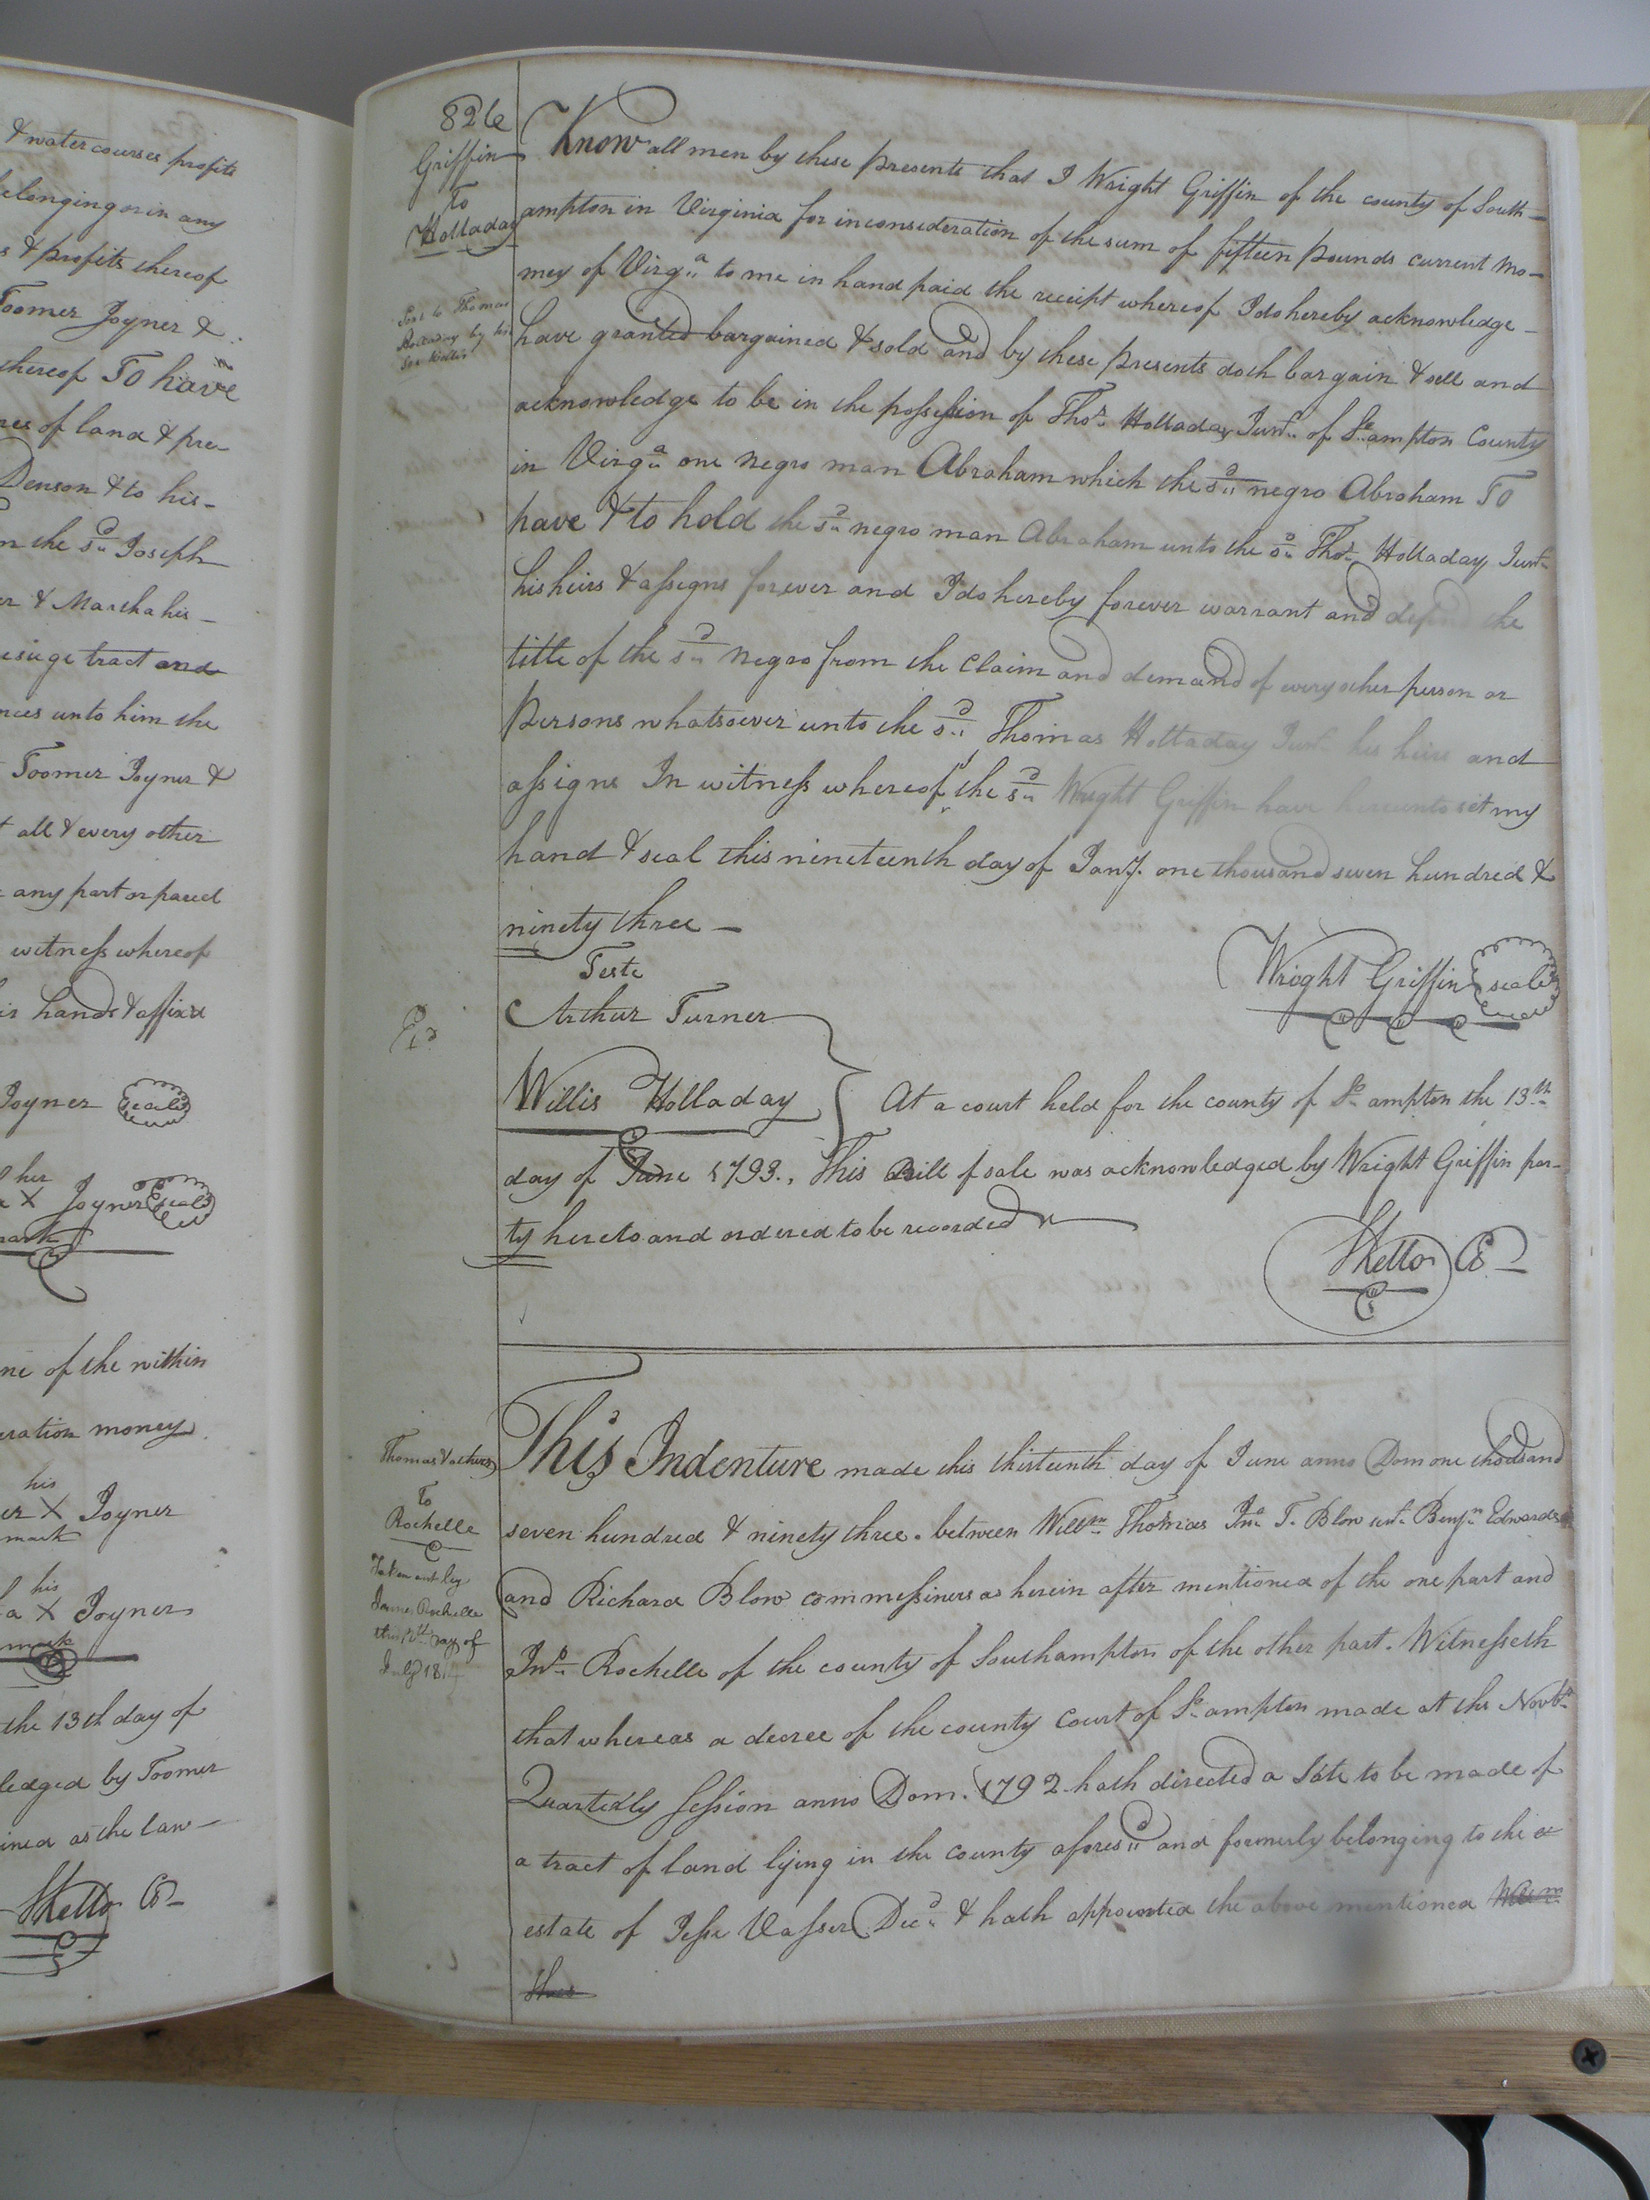 & water courses profits
belonging or in any
s & profits thereof
Toomer Joyner &
thereof To have
res of land & pre-
Denson & to his -
n the sd Joseph
er & Martha his -
tract and
nces unto him the
Toomer Joyner &
t all & every other
any part or parcel
witness whereof
ir hands & affixd
Joyner seal
her
a X Joyner seal
mark
ne of the within
eration money
his
er X Joyner
mark
his
a X Joyner
mark
the 13th day of
ledged by Toomer
ined as the law -
SKello CC
826
Griffin
To
Holladay
Sent to Thomas
Holladay by his
Son Willis
Know all men by these presents that I Wright Griffin of the county of South-
ampton in Virginia for in consideration of the sum of fifteen pounds current mo-
ney of Virga to me in hand paid the receipt whereof I do hereby acknowledge -
have granted bargained & sold and by these presents doth bargain & sell and
acknowledge to be in the possession of Thos Holladay Junr of So ampton County
in Virga one negro man Abraham which the sd negro Abraham To
have & to hold the sd negro man Abraham unto the sd Thos Holladay Junr
his heirs & assigns forever and I do hereby forever warrant and defend the
title of the sd Negro from the Claim and demand of every other person or
persons whatsoever unto the sd Thomas Holladay Junr his heirs and
assigns In witness whereof the sd Wright Griffin have hereunto set my
hand & seal this nineteenth day of Jany. one thousand seven hundred &
ninety three -
Teste
Arthur Turner
Willis Holladay
Wright Griffin seal
Ed
At a court held for the county of So ampton the 13th
day of June 1793. This Bill of sale was acknowledged by Wright Griffin par-
ty hereto and ordered to be recorded
SKello CC
Thomas & others
To
Rochelle
Taken out by
James Rochelle
this day of
July 18
This Indenture made this thirteenth day of June anno Dom one thousand
seven hundred & ninety three. between Willm Thomas Jno T. Blow Benjn Edwards
and Richard Blow commessiners as herein after mentioned of the one part and
Jno Rochelle of the county of Southampton of the other part. Witnesseth
that whereas a decree of the county Court of So ampton made at the Novbr
Quarterly Session anno Dom. 1792 hath directed a Sale to be made of
a tract of land lying in the county aforesd and formerly belonging to the
estate of Jesse Vasser Decd & hath appointed the above mentioned Willm